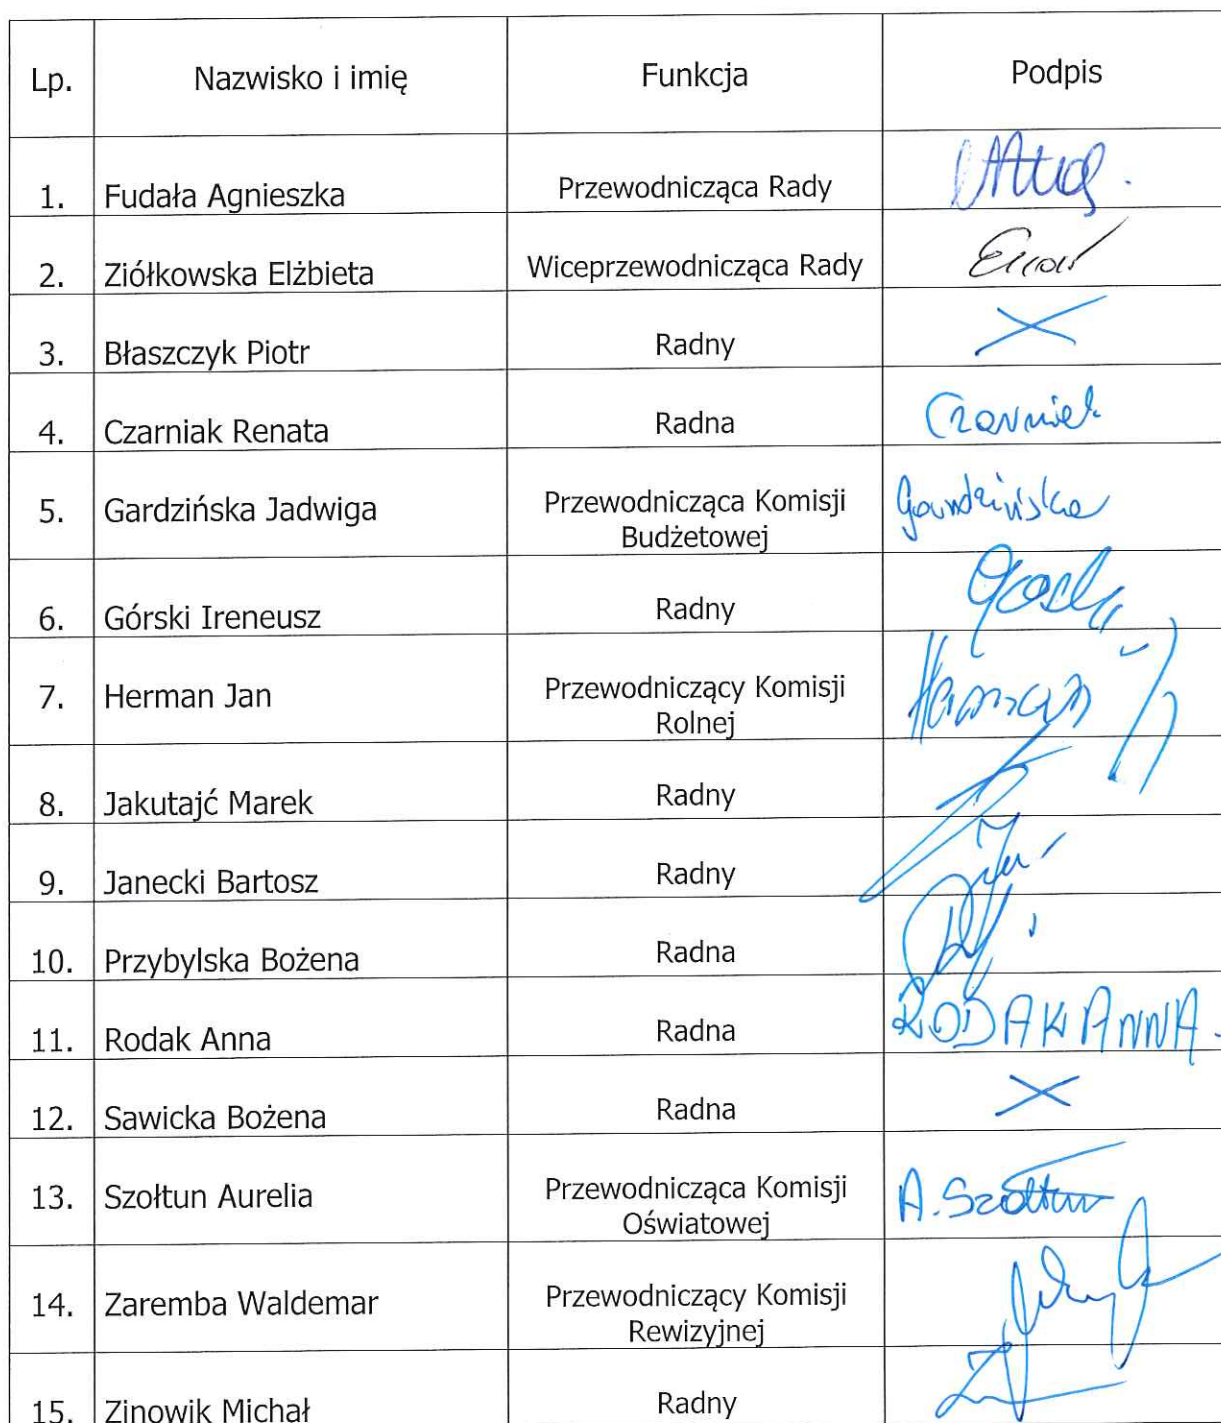 Lp. Nazwisko i imię Funkcja Podpis
1. Fudała Agnieszka Przewodnicząca Rady
2. Ziółkowska Elżbieta Wiceprzewodnicząca Rady
3. Błaszczyk Piotr Radny X
4. Czarniak Renata Radna Czarniak
5. Gardzińska Jadwiga Przewodnicząca Komisji Budżetowej Gardzińska
6. Górski Ireneusz Radny
7. Herman Jan Przewodniczący Komisji Rolnej Herman
8. Jakutajć Marek Radny
9. Janecki Bartosz Radny
10. Przybylska Bożena Radna
11. Rodak Anna Radna RODAK ANNA
12. Sawicka Bożena Radna X
13. Szołtun Aurelia Przewodnicząca Komisji Oświatowej A. Szołtun
14. Zaremba Waldemar Przewodniczący Komisji Rewizyjnej
15. Zinowik Michał Radny